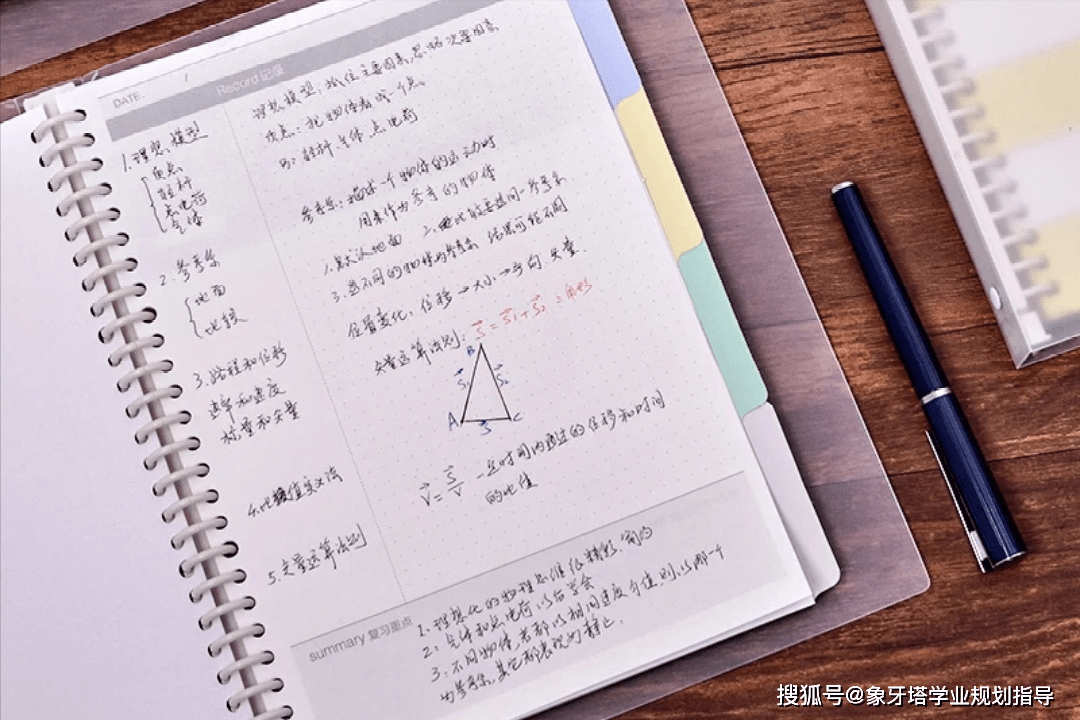 DATE:
Record 记录
1.理想模型
质点
轻杆
点电荷
气体
2.参考系
地面
比较
3.路程和位移
速率和速度
标量和矢量
4.比值定义法
5.矢量运算法则
理想模型：抓住主要因素,忽略次要因素
质点：把物体看成一个点。
轻杆 气体 点电荷
参考系：描述一个物体的运动时
用来作为参考的物体
1.默认地面 2. 比较要选同一参考系
3.选不同的物体为参考系 结果可能不同
位置变化：位移→大小→方向 矢量
矢量运算法则：S⃗ = S⃗₁ + S⃗₂ 三角形
B
S⃗₁ S⃗₂
A C
S⃗
V⃗ = S⃗/V 一段时间内通过的位移和时间
的比值
summary 复习重点
1. 理想化的物理思维
2: 气体和点电荷以后学会
3:不同物体,若都以相同速度 则以那一个
为参考系,其它都表现为静止.
搜狐号@象牙塔学业规划指导